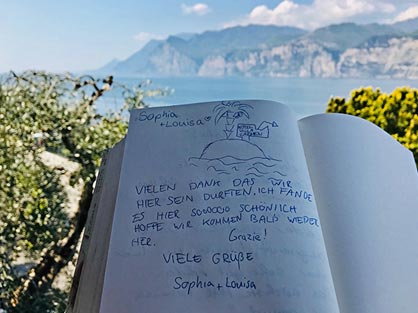 Sophia
+ Louisa
VIELEN DANK DAS WIR
HIER SEIN DURFTEN, ICH FANDE
ES HIER SOOOOO SCHÖN, ICH
HOFFE WIR KOMMEN BALD WIEDER
HER. Grazie!
VIELE GRÜßE
Sophia + Louisa